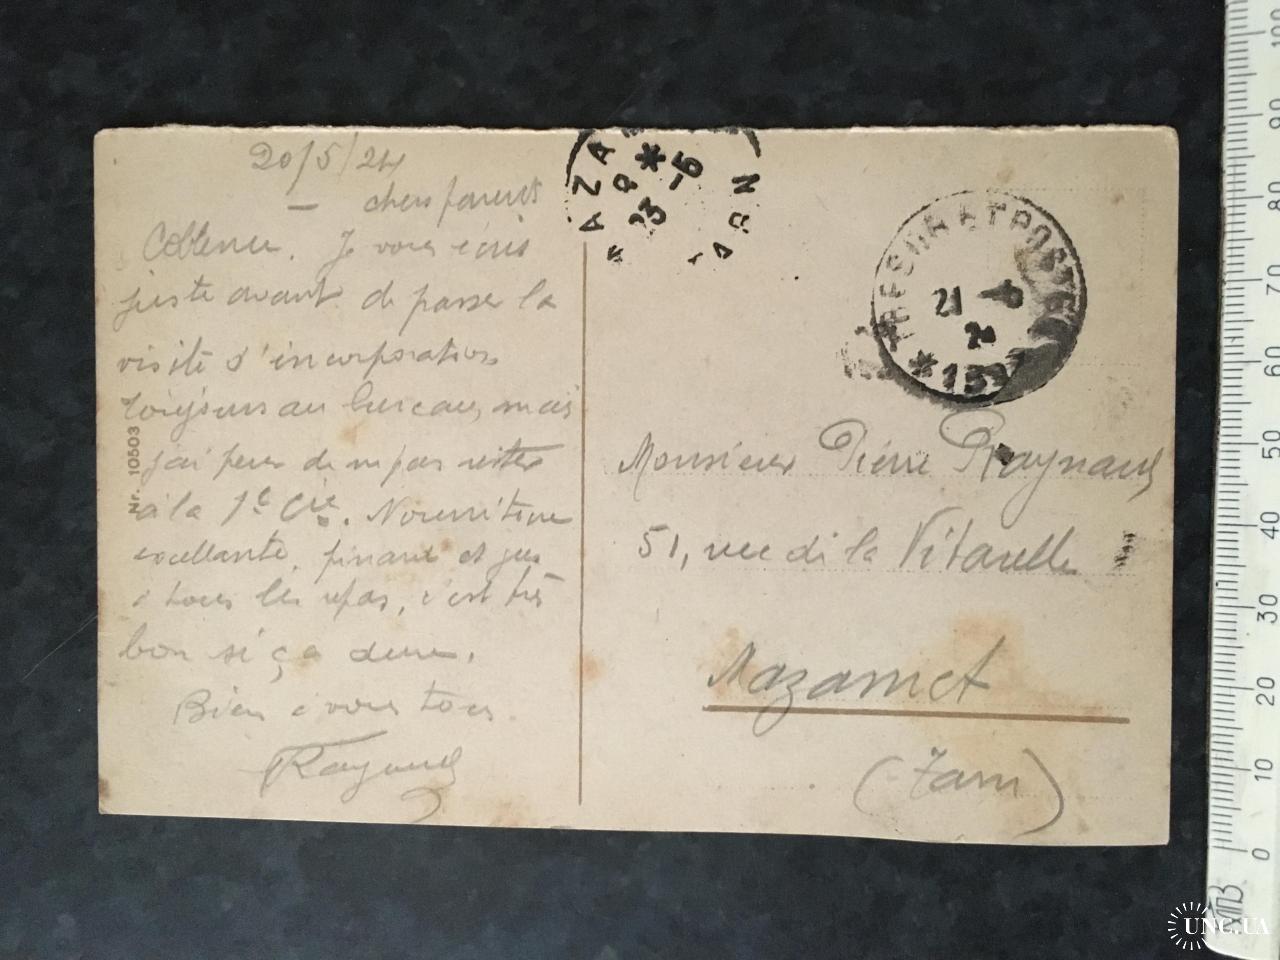 20/5/24
— chers parents
Coblence. Je vous écris
juste avant de passer la
visite d'incorporation
toujours au bureau, mais
j'ai peur de n pas rester
à la 1e Cie. Nourriture
excellante, pinard et jus
à tous les repas, c'est très
bon si ça dure.
Bien à vous tous.
Raynaud
Nr. 10503
MAZA
* 
23 -5
TARN
TRESOR ET POSTES
21 -5
24
Monsieur Pierre Raynaud
51, rue de la Vitarelle
Mazamet
(Tarn)
0 10 20 30 40 50 60 70 80 90 100
UNC.UA